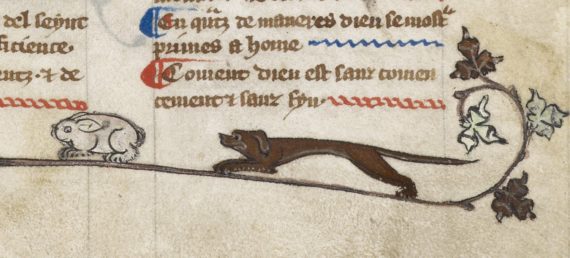 del seynt
ficience.
⁊ de
En de maneres dieu se most
primes a home
Coment dieu est sanz comen
cement ⁊ sanz fyn.